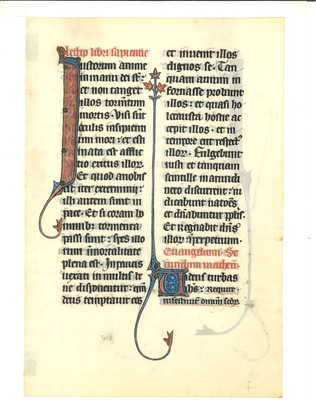 Lectio libri sapientie
Iustorum anime
in manu dei st̄:
et non tanget
illos tormētum
mortis. Visi sūt
oculis insipienti
um mori: et esti
mata est afflic
tio exitus illoꝝ.
Et quod a nobis
iter exterminii:
illi autem sunt in
pace. Et si coram ho
minibꝫ tormenta
passi sunt: spes illo
rum īmortalitate
plena est. In paucis
uexati in multis be
ne disponentur: qm̄
deus temptauit eos
et inuenit illos
dignos se. Tan
quam aurum in
fornace probauit
illos: et quasi ho
locausta hostie ac
cepit illos. et in
tempore erit respectꝰ
illoꝝ. Fulgebunt
iusti et tanquam
scintille in arundi
neto discurrent: iu
dicabunt natōes,
et dn̄abuntur pplis.
Et regnabit dn̄s
illoꝝ īperpetuum.
Euangelium. Se
cundum matheū.
Uidens turbas
ihs: Require